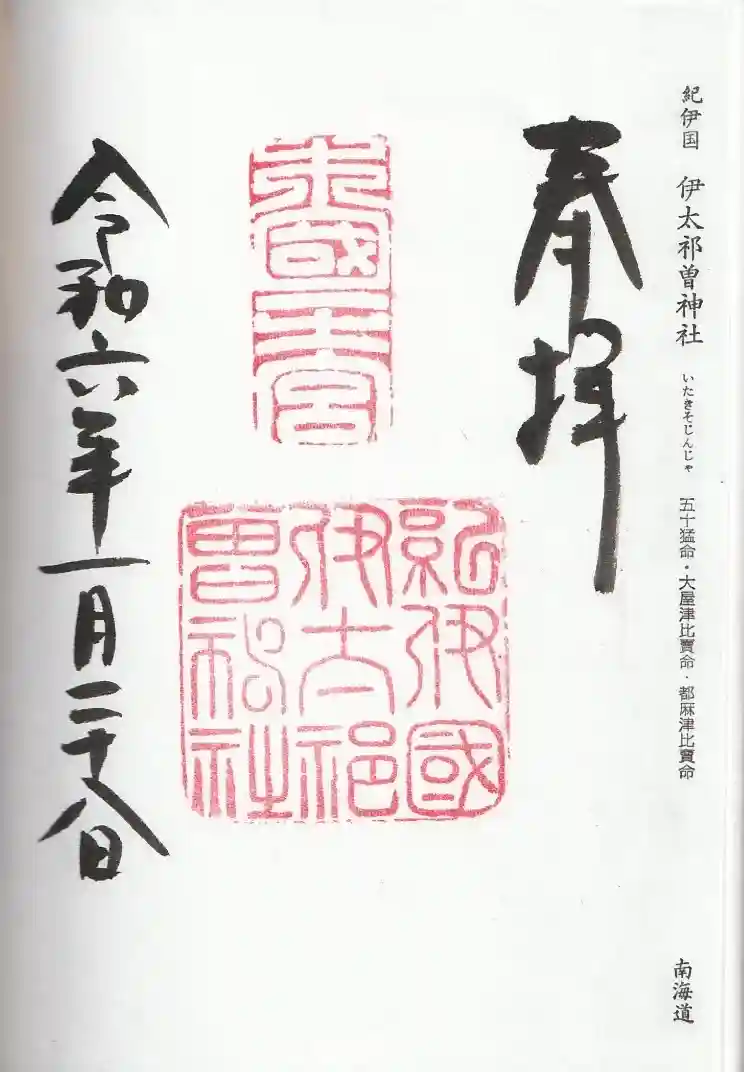 紀伊国　伊太祁曽神社　いたきそじんじゃ　五十猛命・大屋津比賣命・都麻津比賣命
南海道
奉拝
木國一宮
紀伊國
伊太祁
曽神社
令和六年一月二十八日